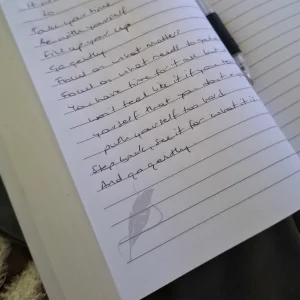 to
Take your time
Be with yourself
Fill up your cup
Go gently
Focus on what matters
Focus on what needs to
You have time for it all but
won't feel like it if you
yourself that you don't
push yourself too hard
Step back, see it for what it is
And go gently